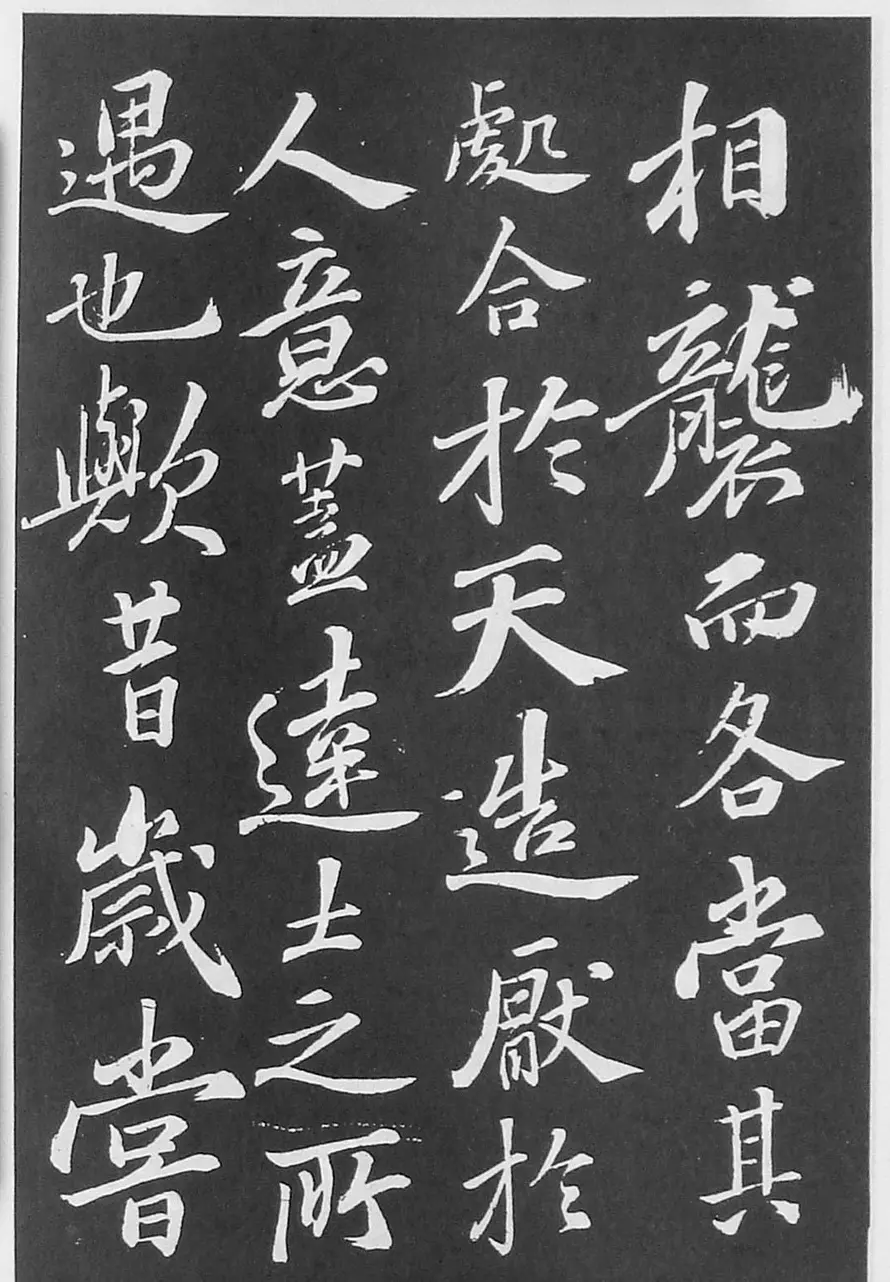 相襲而各當其
處合於天造厭於
人意蓋達士之所
遇也歟昔歳嘗